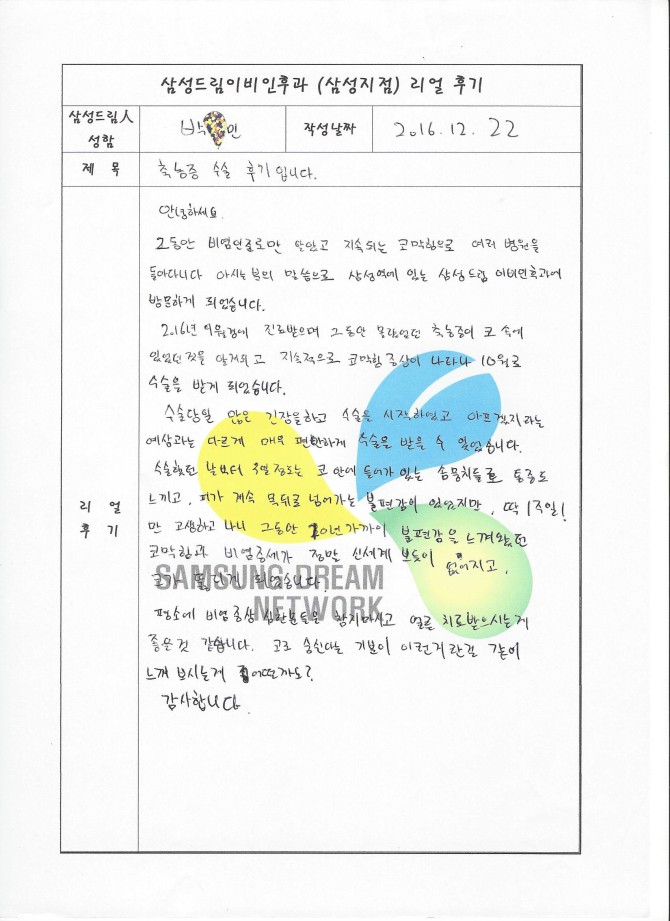 삼성드림이비인후과 (삼성지점) 리얼 후기
삼성드림人 성함
박 민
작성날짜
2016.12.22
제 목
축농증 수술 후기입니다.
리 얼 후 기
안녕하세요.
그동안 비염인줄로만 알았고 지속되는 코막힘으로 여러 병원을
돌아다니다 아시는 분의 말씀으로 삼성역에 있는 삼성드림 이비인후과에
방문하게 되었습니다.
2016년 9월경에 진료받으며 그동안 몰랐었던 축농증이 코 속에
있었던 것을 알게되고 지속적으로 코막힘 증상이 나타나 10월로
수술을 받게 되었습니다.
수술당일 많은 긴장을하고 수술을 시작하였고 아프겠지라는
예상과는 다르게 매우 편안하게 수술을 받을 수 있었습니다.
수술했던 날부터 정도는 코 안에 들어가 있는 솜뭉치들로 통증도
느끼고, 피가 계속 목뒤로 넘어가는 불편감이 있었지만, 딱 1주일!
만 고생하고 나니 그동안 10년가까이 불편감을 느껴왔던
코막힘과 비염증세가 정말 신세계 보듯이 없어지고,
코가 뚫리게 되었습니다.
평소에 비염증상 심한분들은 참지마시고 얼른 치료받으시는게
좋은것 같습니다. 코로 숨쉰다는 기분이 이런거란걸 같이
느껴 보시는게 어떤가요?
감사합니다.
SAMSUNG DREAM
NETWORK